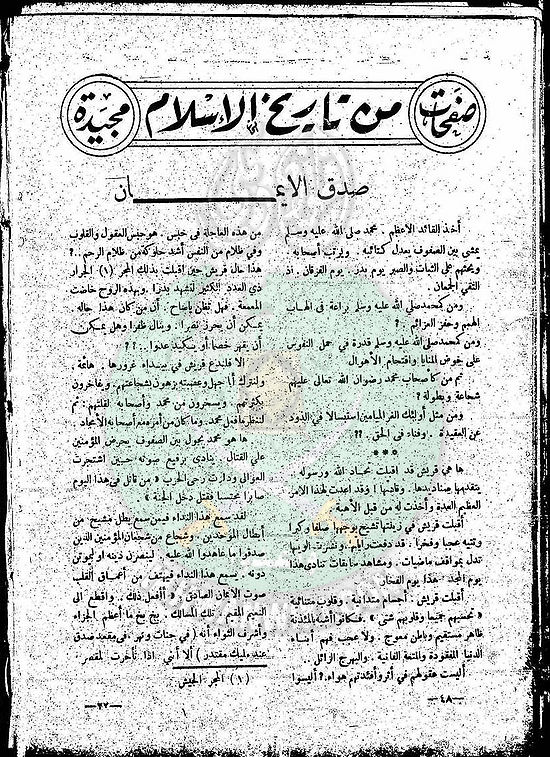 صفحات مجيدة من تاريخ الإسلام
صدق الإيمان
أخذ القائد الأعظم . محمد صلى الله عليه وسلم
يمشى بين الصفوف يعدل كتائبه . ويرتب أصحابه
ويحثهم على الثبات والصبر يوم بدر . يوم الفرقان . اذ
التقى الجمعان .
ومن كمحمد صلى الله عليه وسلم براعة فى الهاب
الهمم وحفز العزائم . ?
ومن كمحمد صلى الله عليه وسلم قدرة فى حمل النفوس
على خوض المنايا واقتحام الأهوال
ثم من كأصحاب محمد رضوان الله تعالى عليهم
شجاعة وبطولة ?
ومن مثل أولئك الغر الميامين استبسالا فى الذود
عن العقيدة . وفناء فى الحق . ??
***
ها هى قريش قد اقبلت تحاد الله ورسوله .
يتقدمها صناديدها . وقادتها وقد اعدت لهذا الامر
العظيم العدة وأخذت له من قبل الأهبة
أقبلت قريش فى زينتها تشيح بوجهها صلفا وكبرا
وتتيه عجبا وفخرا . قد دقت ونشرت ألويتها
تدل بمواقف ماضيات . ومشاهد سابقات تنادى هذا
يوم المجد هذا يوم الفخار.
أقبلت قريش . أجسام متدانية . وقلوب متنائية
« تحسبهم جميعا وقلوبهم شتى » فكانوا أشبه
ظاهر مستقيم وباطن معوج . ولا عجب فهم أبناء
الدنيا المفقودة والمتعة الفانية . والبهرج الزائل ..
أليست عقولهم فى أثر وأفئدتهم هواء.? أليسوا
—٤٨—
من هذه العاجلة فى حبس . هو حبس العقول والقلوب
وفى ظلام من النفس أشد حلوكة من ظلام الرحم ..?
هذا حال قريش حين اقبلت بذلك المجر (١) الجرار
ذى العدد الكثير لتشهد بدرا . وبهذه الروح خاضت
المعمعة . فهل تظن ياصاح أن من كان هذا حاله .
يمكن أن يحرز نصرا . وينال ظفرا وهل يمكن
أن يقهر خصما أو يكيد عدوا ..??
ألا فلندع قريش فى بيداء غرورها . هائمة .
ولنترك أبا جهل وعصبته يزهون بشجاعتهم . ويفاخرون
بكثرتهم . ويسخرون من محمد وأصحابه لقلتهم . ثم
لننظر ما فعل محمد. وما كان من أمره مع أصحابه الأمجاد .
ها هو محمد يجول بين الصفوف يحرض المؤمنين
على القتال . ينادى برفيع صوته حين اشتجرت
العوالى ودارت رحى الحرب « من قاتل فى هذا اليوم
صابرا محتسبا فقتل دخل الجنة »
لقد سمع هذا النداء فيمن سمع بطل مشيح من
أبطال الموحدين . وشجاع من شجعان المؤمنين الذين
صدقوا ما عاهدوا الله عليه . لينصرن دينه او ليموتن
دونه . يسمع هذا النداء فيهتف من أعماق القلب
صوت الايمان الصادق . « أأفعل ذلك .. وأقطع الى
النعيم المقيم . تلك المسالك . بخ بخ ما أعظم الجزاء
وأشرف الثواء أنه ( فى جنات ونهر . فى مقعد صدق
عند مليك مقتدر ) ألا أننى اذا تأخرت لمقصر .
(١) المجر الجيش
—٢٢—